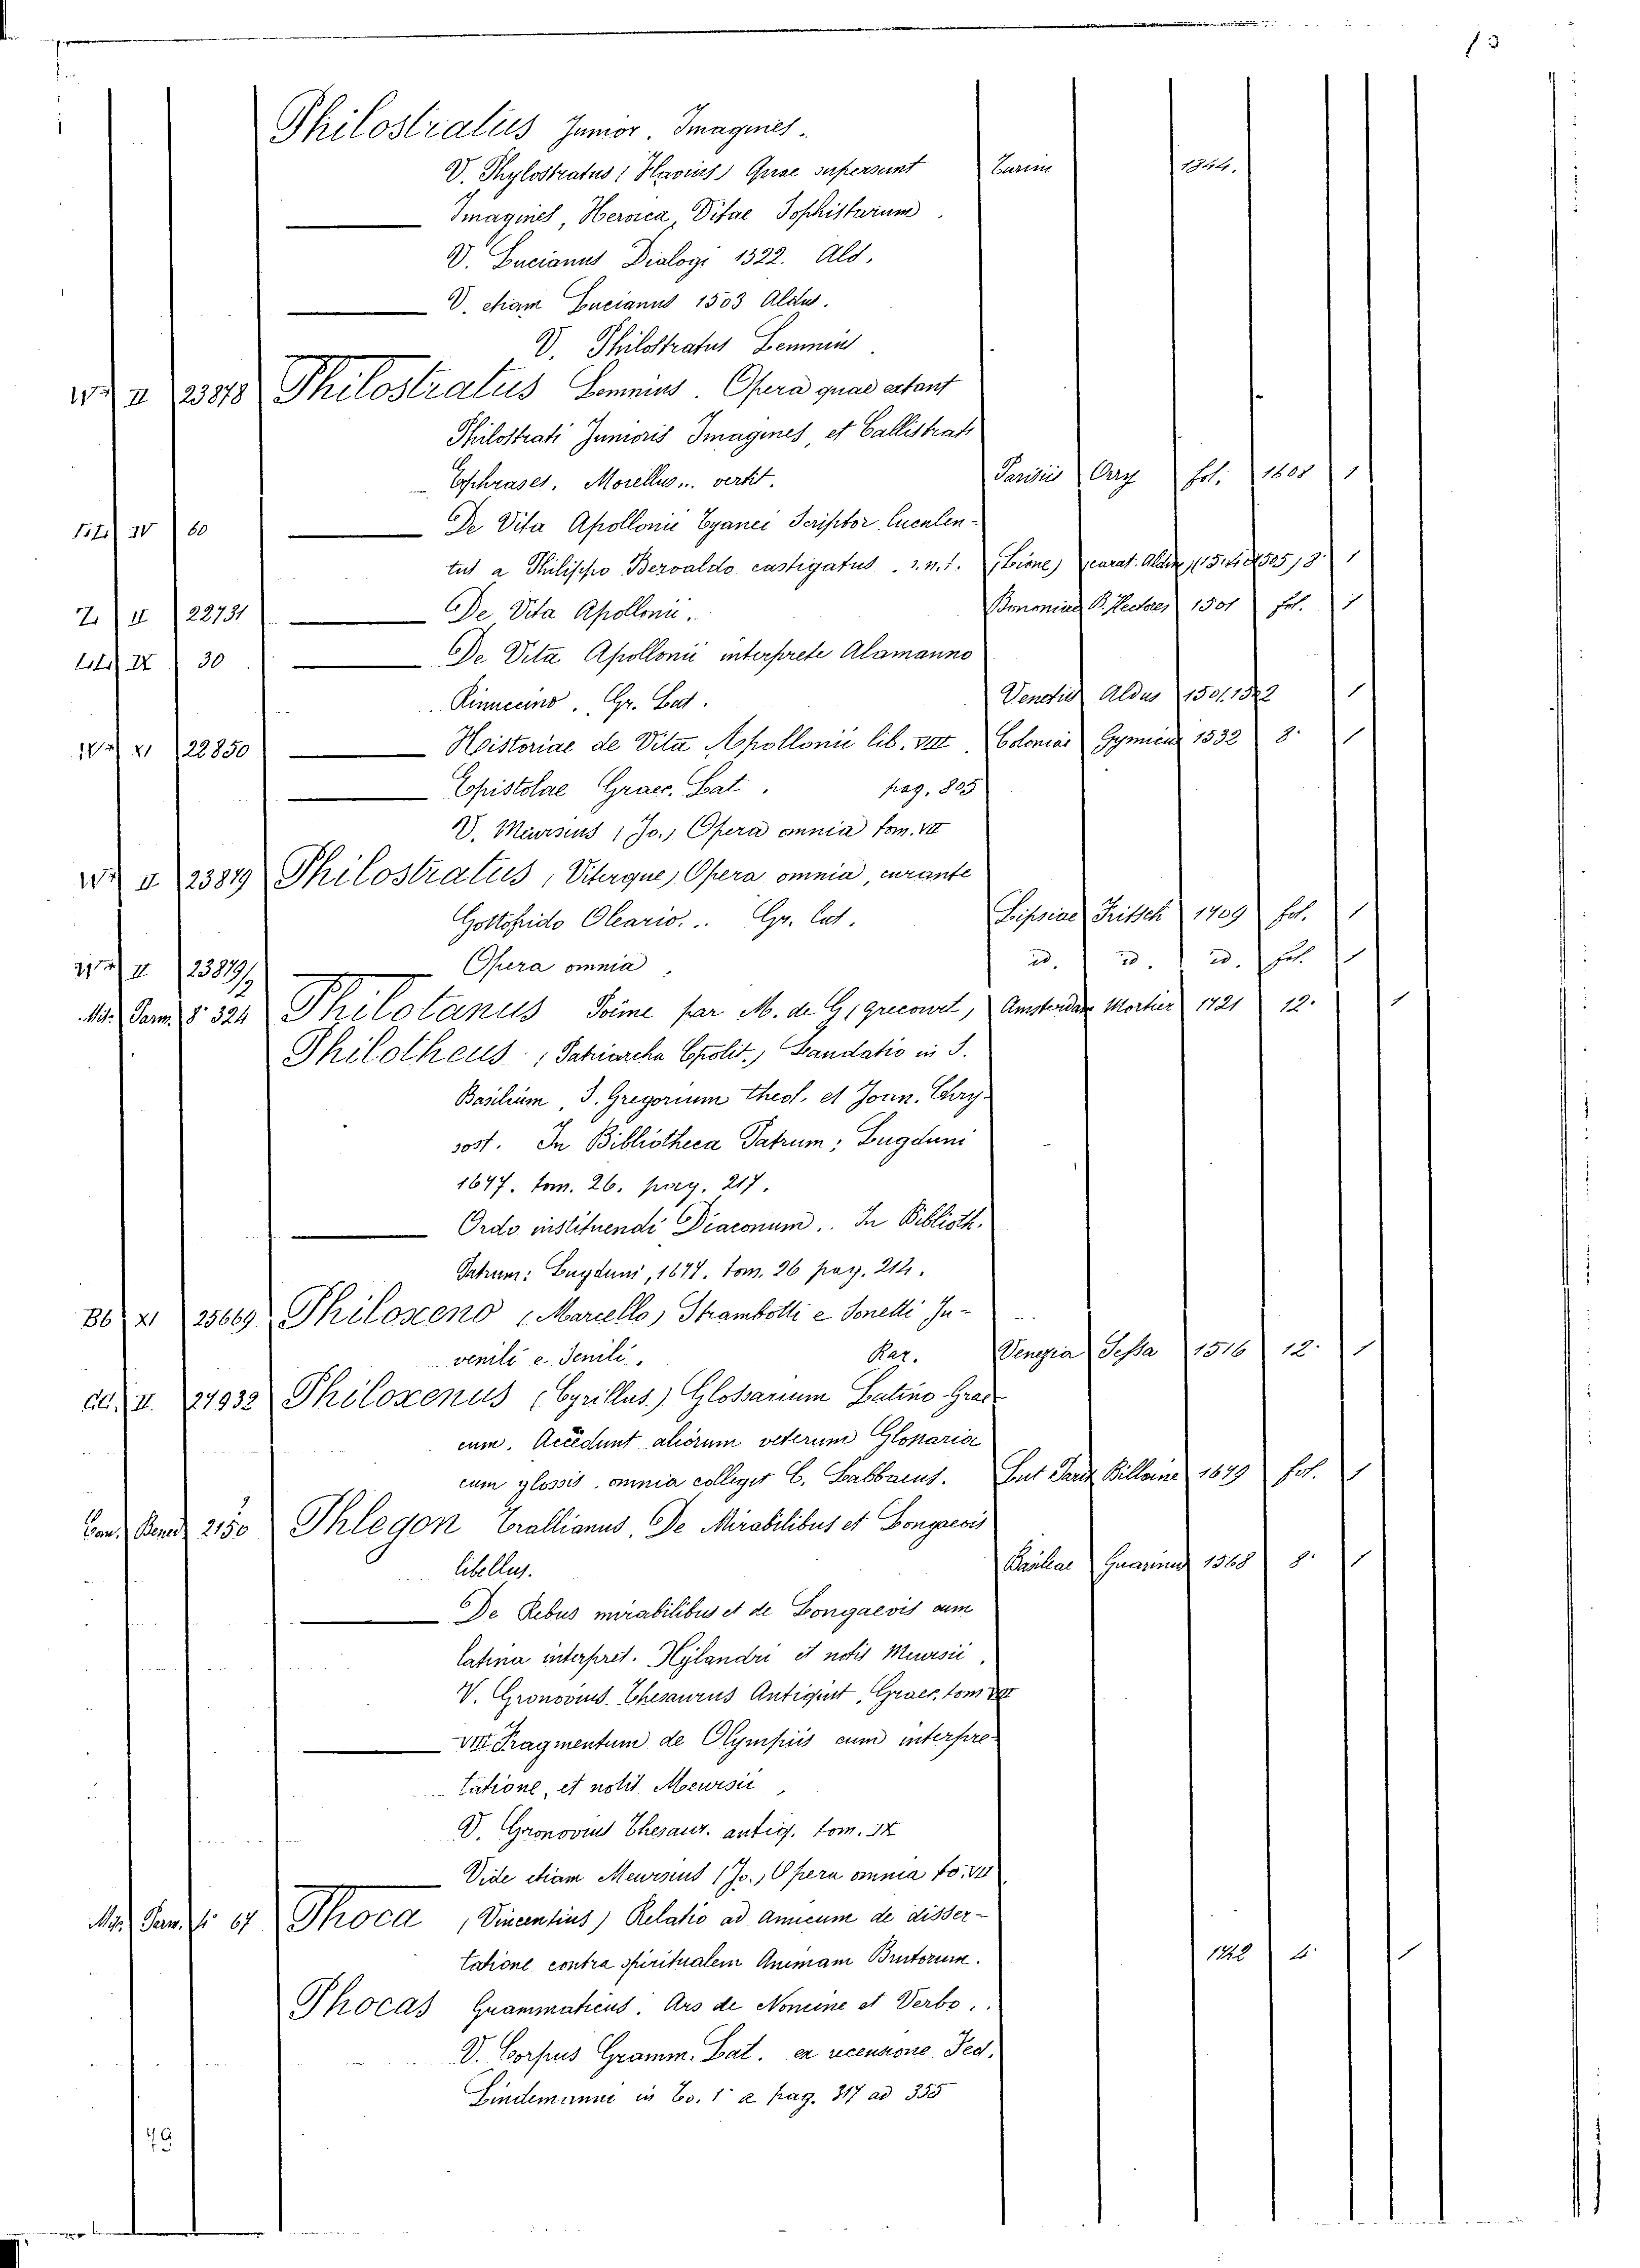 13
Philostratus Junior. Imagines.
V. Phylostratus (Flavius) Quae supersunt Turim 1844.
Imagines, Heroica, Vitae Sophistarum.
V. Lucianus Dialogi 1522. Ald.
V. etiam Lucianus 1503 Aldus.
V. Philostratus Lemnius.
II 23878 Philostratus Lemnius. Opera quae extant
Philostrati Junioris Imagines, et Callistrati
Ecphrases. Morellus... vertit. Parisiis Orry fol. 1608 1
IV 60 De Vita Apollonii Tyanei Scriptor luculen-
tus a Philippo Beroaldo castigatus. s.n.t. carat. Aldin 8. 1
Z. II 22731 De Vita Apollonii. Bononiae B. Hectores 1501 fol. 1
IX 30 De Vita Apollonii interprete Alamanno
Rinuccino. Gr. Lat. Venetiis Aldus 1501.1502 1
XI 22850 Historiae de Vita Apollonii lib. VIII. Coloniae Gymnicus 1532 8. 1
Epistolae Graec. Lat. pag. 805
V. Meursius (Jo.) Opera omnia tom. VII
II 23879 Philostratus (Uterque) Opera omnia, curante
Gottofrido Oleario... Gr. lat. Lipsiae Fritsch 1709 fol. 1
II 23879/2 Opera omnia. id. id. id. fol. 1
Mis. Parm. 8. 324 Philotanus Poime par M. de G. (Grecourt) Amsterdam Mortier 1721 12. 1
Philotheus (Patriarcha Cpolit.) Laudatio in S.
Basilium, S. Gregorium theol. et Joan. Chry-
sost. In Bibliotheca Patrum; Lugduni
1677. tom. 26. pag. 217.
Ordo instituendi Diaconum.. In Biblioth.
Patrum: Lugduni, 1677. tom. 26 pag. 214.
Bb XI 25669 Philoxeno (Marcello) Strambotti e Sonetti Ju-
venili e Senili. Rar. Venezia Sessa 1516 12. 1
dd. II. 27932 Philoxenus (Cyrillus.) Glossarium Latino-Grae-
cum. Accedunt aliorum veterum Glossaria
cum glossis. omnia collegit C. Labbaeus. Lut Paris Billaine 1679 fol. 1
Can. Bened 2150 Phlegon Trallianus. De Mirabilibus et Longaevis
libellus. Basileae Guarinus 1568 8. 1
De Rebus mirabilibus et de Longaevis cum
latina interpret. Xylandri et notis Meursii.
V. Gronovius Thesaurus Antiquit. Graec. tom VIII
VIII Fragmentum de Olympiis cum interpre-
tatione, et notis Meursii.
V. Gronovius Thesaur. antiq. tom. IX
Vide etiam Meursius (Jo.) Opera omnia to. VII
67 Phoca (Vincentius) Relatio ad amicum de disser-
tatione contra spiritualem Animam Brutorum. 1742 4. 1
Phocas Grammaticus. Ars de Nomine et Verbo.
V. Corpus Gramm. Lat. ex recensione Fed.
Lindemanni in To. 1° a pag. 317 ad 355
79